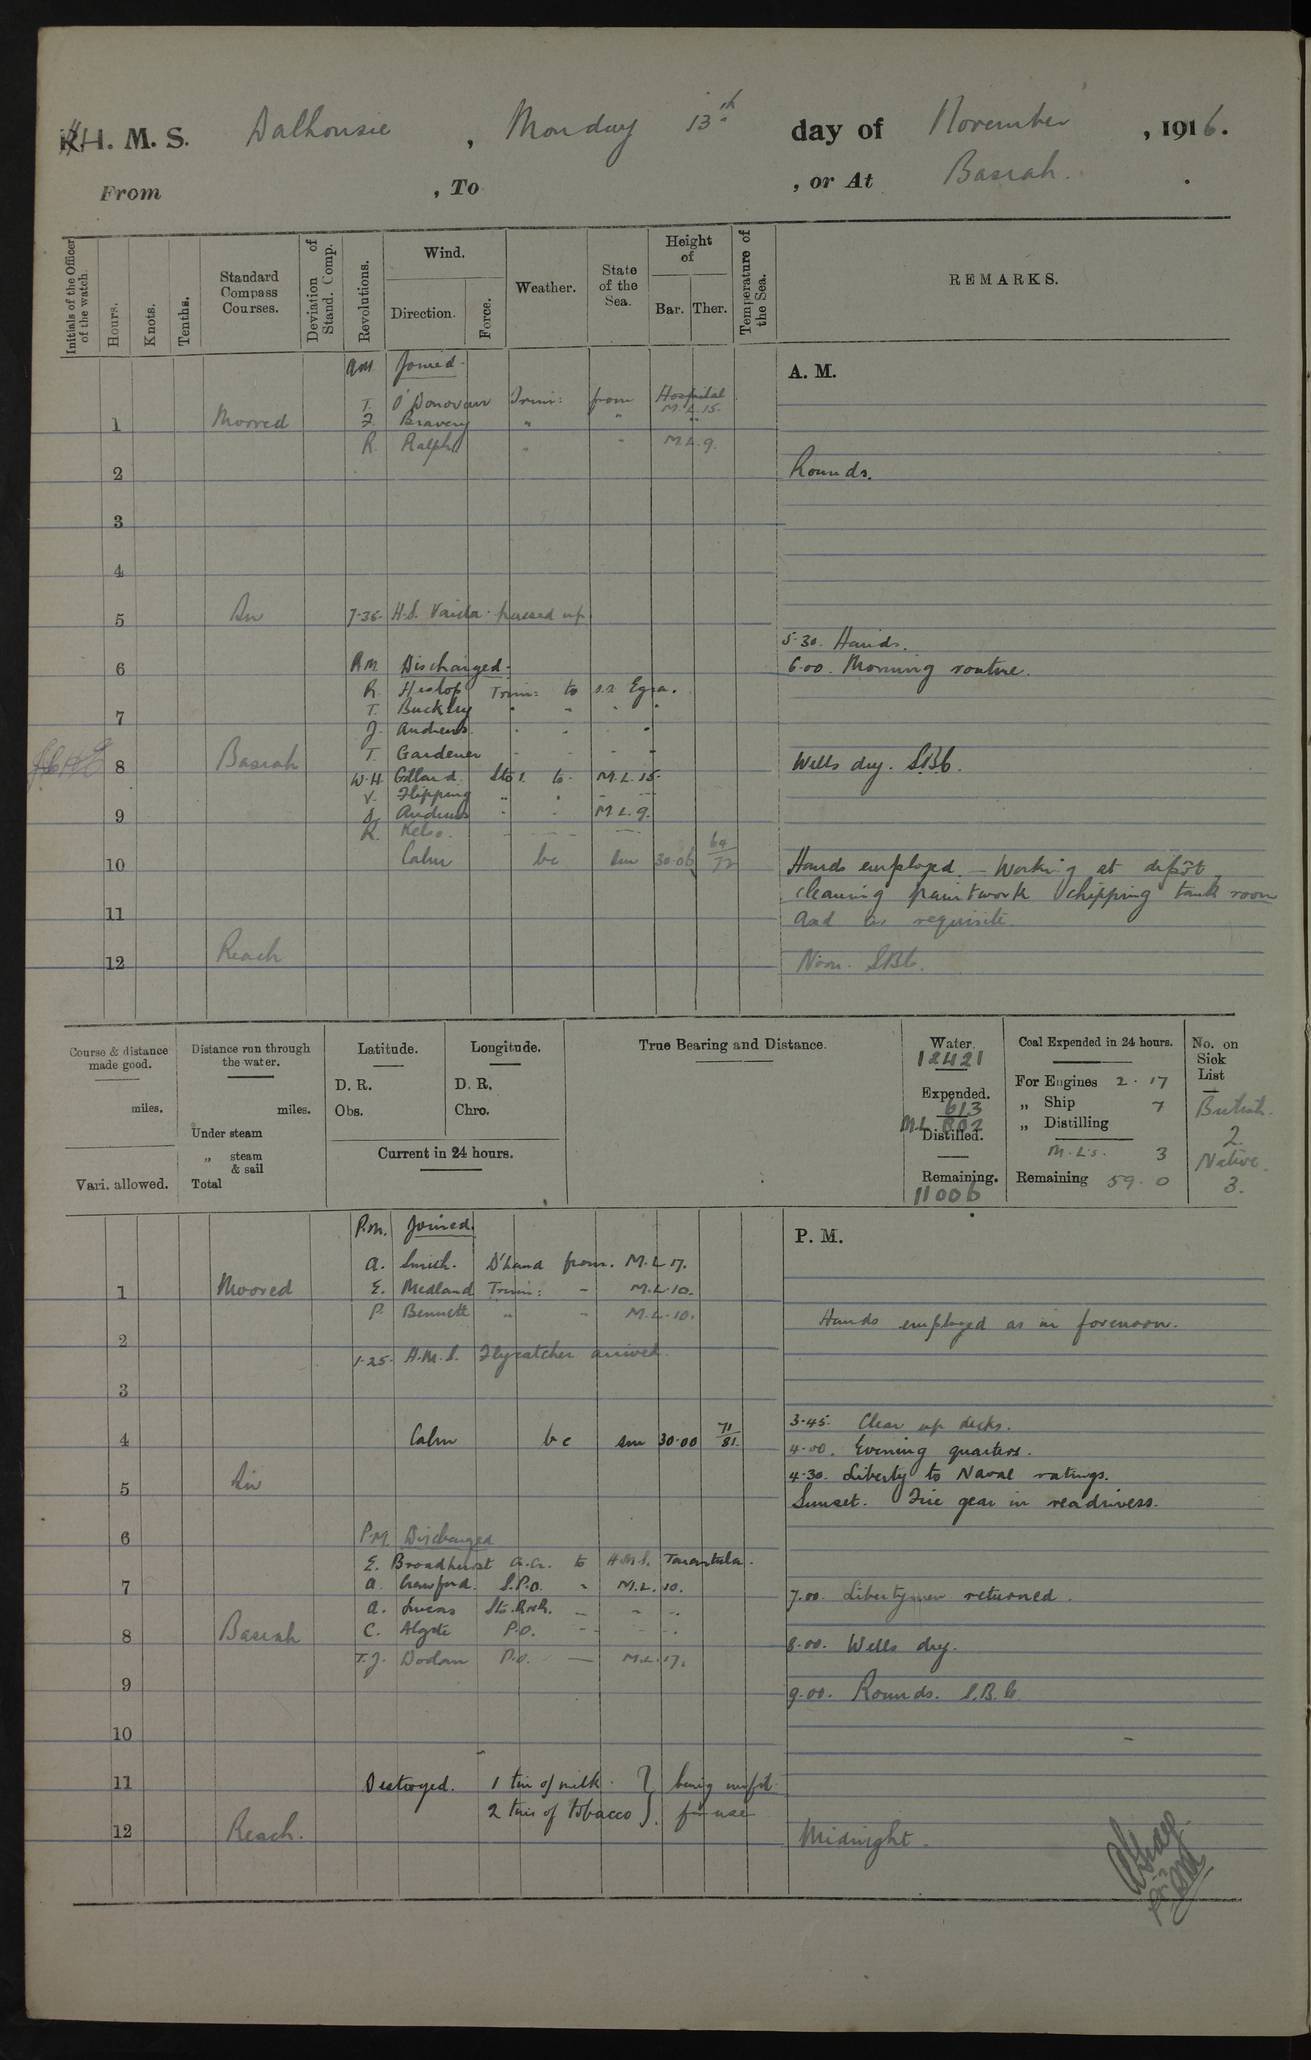 H. M. S. Dalhousie , Monday 13th day of November , 1916.
From , To , or At Basrah.
Initials of the Officer of the watch.
Hours.
Knots.
Tenths.
Standard Compass Courses.
Deviation of Stand. Comp.
Revolutions.
Wind.
Direction.
Force.
Weather.
State of the Sea.
Height of
Bar.
Ther.
Temperature of the Sea.
REMARKS.
A.M. Joined.
A. M.
T. O'Donovan Trim: from Hospital
1 Moored F. Bravery " " M.L.15.
R. Ralph " " M.L.9.
2 Rounds.
3
4
5 In 7-35 H.S. Varela passed up.
5-30. Hands.
6 A.M. Discharged. 6.00. Morning routine.
R. Heslop Trim: to s.s. Egra.
7 T. Buckley " " " "
J. Andrews " " " "
T. Gardener - - - -
8 Basrah W.H. Gilland Sto 1. to M.L.15. Wells dry. SBC.
V. Flipping " " - -
9 A. Andrews " " M.L.9.
R. Kelso. - - -
10 Calm bc sm 30.06 69/72 Hands employed. - Working at depôt
cleaning paintwork chipping tank room
11 and as requisite.
12 Reach Noon. SBC.
Course & distance made good.
miles.
Vari. allowed.
Distance run through the water.
miles.
Under steam
" steam & sail
Total
Latitude.
D. R.
Obs.
Longitude.
D. R.
Chro.
Current in 24 hours.
True Bearing and Distance.
Water.
12421
Expended.
613
M.L. 802
Distilled.
Remaining.
11006
Coal Expended in 24 hours.
For Engines 2.17
" Ship 7
" Distilling
M.L's. 3
Remaining 59.0
No. on Sick List
British.
2.
Native.
3.
P.M. Joined. P. M.
A. Smith. D'hand from. M.L.17.
1 Moored E. Medland Trim: - M.L.10.
P. Bennett " - M.L.10.
Hands employed as in forenoon.
2 1-25. H.M.S. Flycatcher arrived.
3
3-45. Clear up decks.
4 Calm bc sm 30.00 71/81. 4-00. Evening quarters.
4-30. Liberty to Naval ratings.
5 In Sunset. Fire gear in readiness.
6 P.M. Discharged
E. Broadhurst to H.M.S. Tarantula.
7 A. Crawford. S.P.O. " M.L.10. 7.00. Libertymen returned.
A. Lucas Sto. - " "
8 Basrah C. P.O. - - " 8.00. Wells dry.
T.J. P.O. — M.L.17.
9 9.00. Rounds. S.B.C.
10
11 Destroyed. 1 tin of milk. } being unfit
2 tins of tobacco }. for use
12 Reach. Midnight.